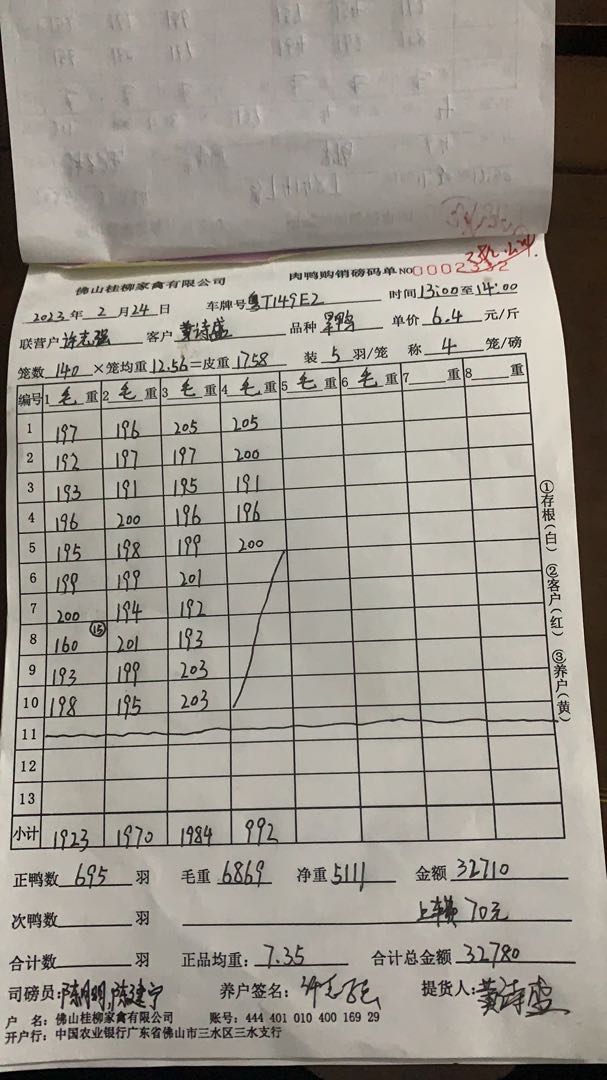 佛山桂柳家禽有限公司 肉鸭购销磅码单 NO 0002332
2023年 2 月 24 日 车牌号 粤T149E2 时间 13:00 至 14:00
联营户 许志强 客户 黄诗盛 品种 单价 6.4 元/斤
笼数 140 ×笼均重 12.56 =皮重 1758 装 5 羽/笼 称 4 笼/磅
编号 1 毛 重 2 毛 重 3 毛 重 4 毛 重 5 毛 重 6 毛 重 7 重 8 重
1 197 196 205 205
2 192 197 197 200
3 193 191 195 191
4 196 200 196 196
5 195 198 199 200
6 199 199 201
7 200 194 192
8 160 (15) 201 193
9 193 199 203
10 198 195 203
11
12
13
小计 1923 1970 1984 992
①存根(白) ②客户(红) ③养户(黄)
正鸭数 695 羽 毛重 6869 净重 5111 金额 32710
次鸭数 羽 上车费 70元
合计数 羽 正品均重: 7.35 合计总金额 32780
司磅员: 养户签名: 许志强 提货人: 黄诗盛
户 名: 佛山桂柳家禽有限公司 账号: 444 401 010 400 169 29
开户行: 中国农业银行广东省佛山市三水区三水支行